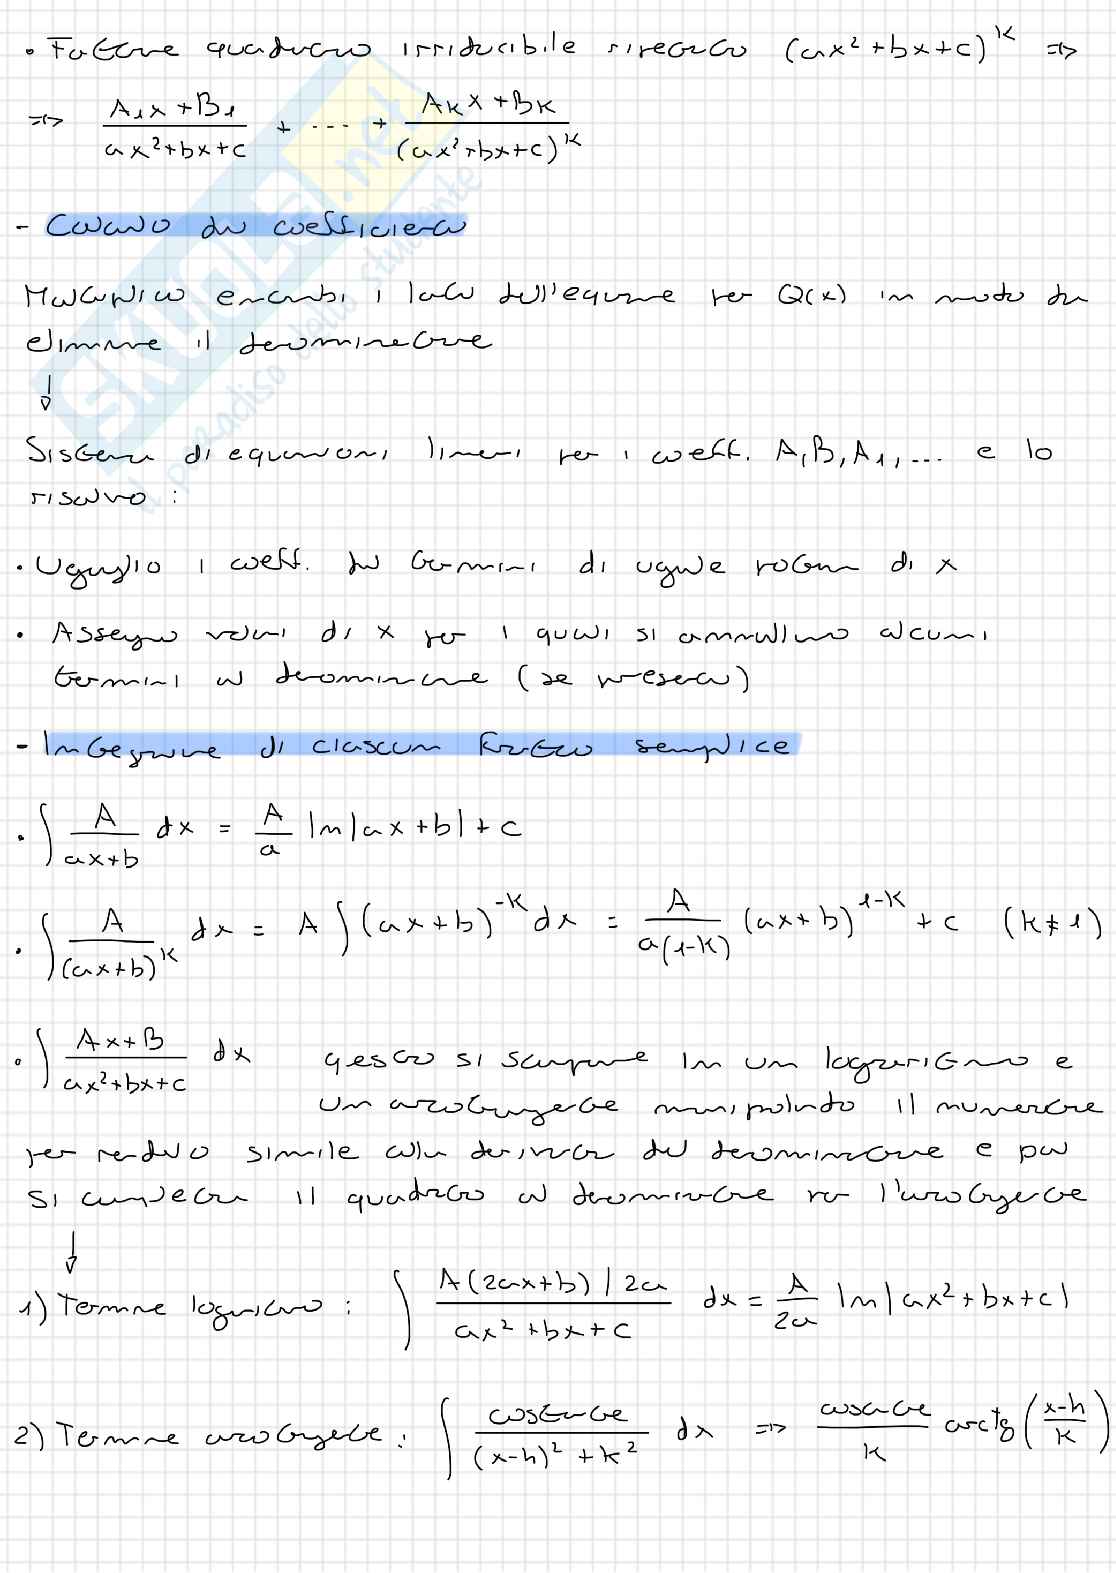 • Fattore quadratico irriducibile ripetuto (ax² + bx + c)^k =>
=> (A₁x + B₁)/(ax² + bx + c) + ... + (Aₖx + Bₖ)/(ax² + bx + c)^k
- Calcolo dei coefficienti
Moltiplico entrambi i lati dell'equazione per Q(x) in modo da
eliminare il denominatore
↓
Sistema di equazioni lineari per i coeff. A, B, A₁, ... e lo
risolvo :
• Uguaglio i coeff. dei termini di uguale potenza di x
• Assegno valori di x per i quali si annullano alcuni
termini al denominatore (se presenti)
- Integrazione di ciascun fratto semplice
• ∫ A/(ax+b) dx = A/a ln|ax + b| + c
• ∫ A/(ax+b)^k dx = A ∫ (ax + b)^-k dx = A/(a(1-k)) (ax + b)^(1-k) + c (k ≠ 1)
• ∫ (Ax + B)/(ax² + bx + c) dx questo si scompone in un logaritmo e
un arcotangente manipolando il numeratore
per renderlo simile alla derivata del denominatore e poi
si completa il quadrato al denominatore per l'arcotangente
↓
1) Termine logaritmo : ∫ (A(2ax+b) / 2a)/(ax² + bx + c) dx = A/2a ln|ax² + bx + c|
2) Termine arcotangente : ∫ costante/((x-h)² + k²) dx => costante/k arctg((x-h)/k)
SKUOLA.net
il paradiso dello studente